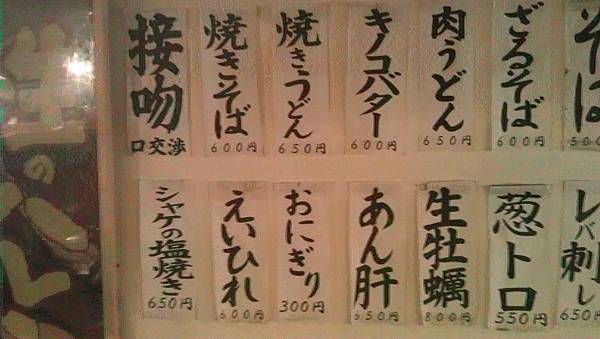 接吻
口交渉
焼きそば
600円
焼きうどん
650円
キノコバター
600円
肉うどん
650円
ざるそば
600円
そば
500
シャケの塩焼き
650円
えいひれ
600円
おにぎり
300円
あん肝
650円
生牡蠣
800円
葱トロ
550円
レバ刺し
650円